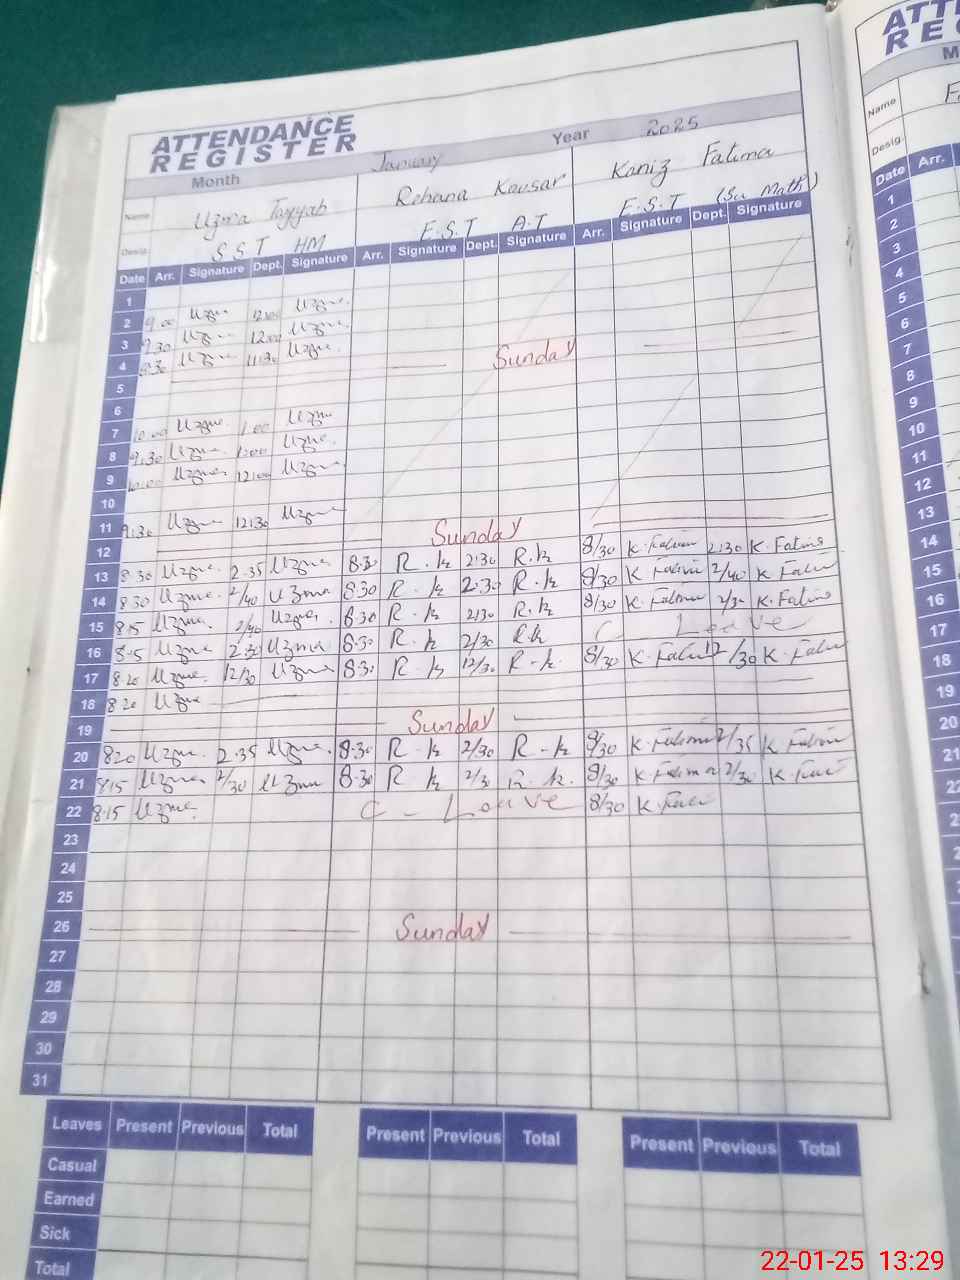 ATTENDANCE
REGISTER
Month January Year 2025
Name Uzma Tayyab Rehana Kousar Kaniz Fatima
Desig. S S T HM E.S.T A.T E.S.T (Sci Math)
Date Arr. Signature Dept. Signature Arr. Signature Dept. Signature Arr. Signature Dept. Signature
1
2 9.00 Uzma 12.00 Uzma.
3 9.30 Uzma 12.00 Uzma.
4 8.30 Uzma 11.30 Uzma.
5 Sunday
6
7 10.00 Uzma. 1.00 Uzma
8 9.30 Uzma. 1.00 Uzma.
9 10.00 Uzma 12.00 Uzma
10
11 9.30 Uzma 12.30 Uzma
12 Sunday
13 8.30 Uzma. 2.35 Uzma 8.30 R.k 2.30 R.k 8/30 K.Fatima 2.30 K.Fatima
14 8.30 Uzma. 2/40 Uzma 8.30 R.k 2.30 R.k 8/30 K Fatima 2/40 K.Fatima
15 8.15 Uzma. 2/40 Uzma. 8.30 R-k 2/30 R.k 8/30 K Fatima 2/30 K.Fatima
16 8.15 Uzma 2.30 Uzma 8.30 R.k 2/30 R.k C Leave
17 8.20 Uzma. 12/30 Uzma 8.30 R-k 12/30 R-k. 8/30 K.Fatima 12/30 K.Fatima
18 8.20 Uzma
19 Sunday
20 8.20 Uzma. 2.35 Uzma. 8.30 R-k 2/30 R-k 8/30 K.Fatima 2/35 K Fatima
21 8.15 Uzma 2/30 Uzma 8.30 R k 2/30 R.k. 8/30 K.Fatima 2/30 K.Fatima
22 8.15 Uzma. C - Leave 8/30 K.Fatima
23
24
25
26 Sunday
27
28
29
30
31
Leaves Present Previous Total Present Previous Total Present Previous Total
Casual
Earned
Sick
Total
ATT
REG
Name
Desig.
Date Arr.
1
2
3
4
5
6
7
8
9
10
11
12
13
14
15
16
17
18
19
20
21
22-01-25 13:29